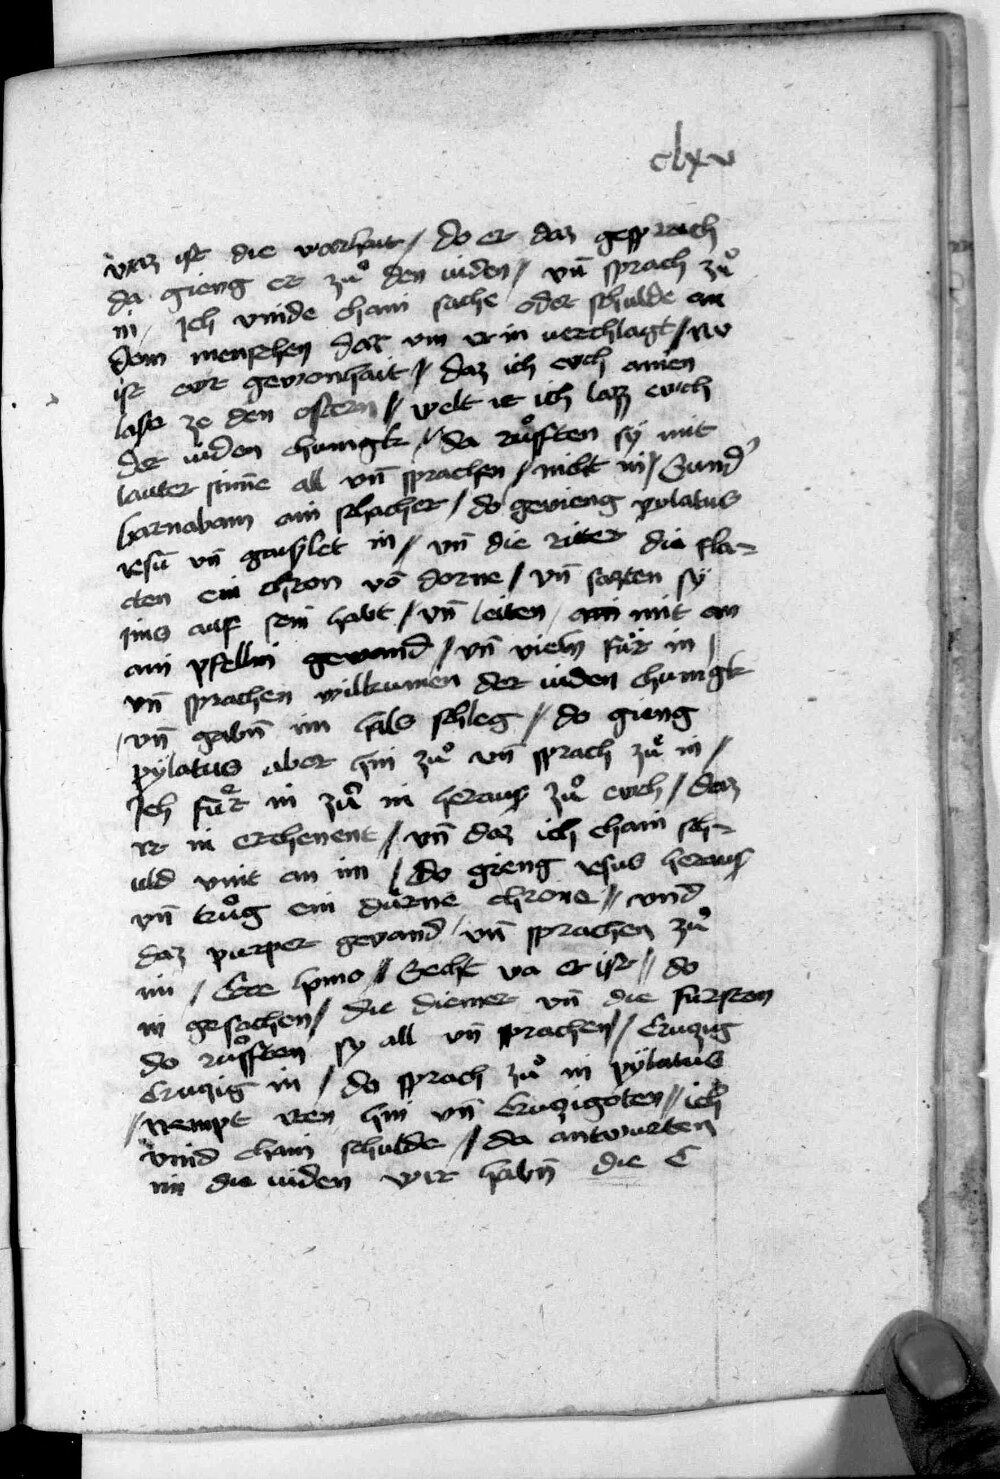 clxv
vraz ist die warhait / do er daz gesprach
da gieng er zuͦ den iuden / vn̄ sprach zuͦ
in / Ich vinde chain sache oder schulde an
dem menschen daz vm ir in verchlagt / nv
ist ewr gewonhait // daz ich evch ainen
lase ze den ostern // welt ir ich lazz evch
der iuden chunigk // da ruͦfften sy mit
lauter stim̄e all vn̄ sprachen / nicht in / Sund'
barnabam ain schacher / do gevieng pylatus
iesū vn̄ gayslet in // vn̄ die ritter die fla-
cten ein chron vō dorne / vn̄ sazten sy
ims auf sein habt / vn̄ leiten mit an
ain pfellin gewand // vn̄ vieln fuͤr in /
vn̄ sprachen willkumen der iuden chunigk
/ vn̄ gabn̄ im hals schleg // do gieng
pylatus aber hin zuͦ vn̄ sprach zuͦ in /
Ich fuͤr in zuͦ in heraus zuͦ evch / daz
ir in erchenent // vn̄ daz ich chain sch-
uld vint an im / do gieng iesus heraus
vn̄ truͦg ein duͤrne chrone // vnd
daz purper gevand / vn̄ sprachen zuͦ
im / Ecce homo // Secht va er ist // do
in gesachen / die diener vn̄ die fursten
do ruͦfften sy all vn̄ sprachen // Cruzig
Cruzig in / do sprach zuͦ in pylatus
// Nempt ien hin vn̄ Cruzigoten // ich
vind chain schulde // da antwurten
im die iuden wir habn̄ die E